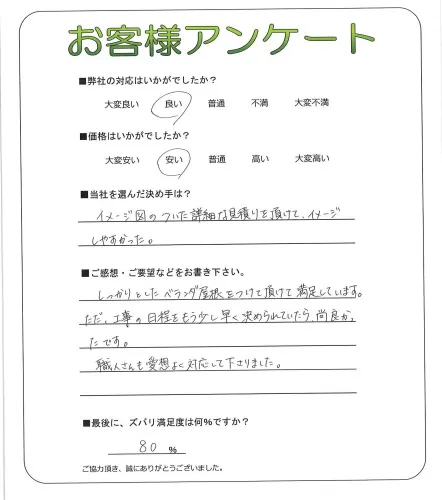 お客様アンケート
■弊社の対応はいかがでしたか?
大変良い 良い 普通 不満 大変不満
■価格はいかがでしたか?
大変安い 安い 普通 高い 大変高い
■当社を選んだ決め手は?
イメージ図のついた詳細な見積りを頂けて、イメージ
しやすかった。
■ご感想・ご要望などをお書き下さい。
しっかりとしたベランダ屋根をつけて頂けて満足しています。
ただ、工事の日程をもう少し早く決められていたら尚良かっ
たです。
職人さんも愛想よく対応して下さりました。
■最後に、ズバリ満足度は何%ですか?
80 %
ご協力頂き、誠にありがとうございました。